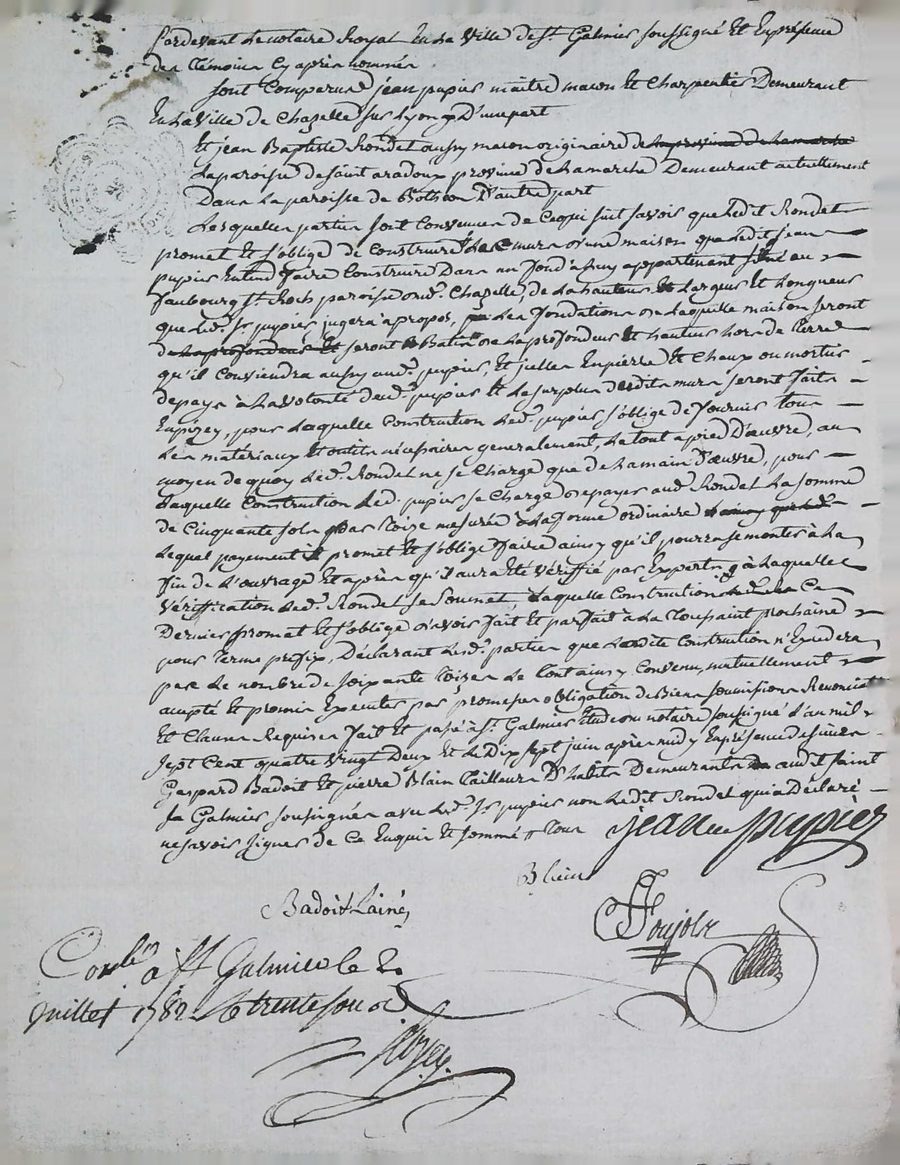 Pardevant Le notaire Royal En La Ville de St. Galmier soussigné Et En présence
des Témoins Cy après nommés
Sont Comparus jean pupier maitre macon Et Charpentier Demeurant
En La Ville de Chazelle sur Lyon D'une part
Et jean Baptiste Rondet aussy macon originaire de la province de Lamarche
La paroisse de saint aradoux province de Lamarche Demeurant actuellement
Dans La paroisse de D'autre part
Lesquelles parties sont Convenues de Ce qui suit savoir que Ledit Rondet
promet Et s'oblige de Construire Les murs d'une maison que Ledit jean
pupier Entend faire Construire Dans un fond à luy appartenant situé au
faubourg St. Roch paroisse dud. Chazelle, de La hauteur Et Largeur Et Longueur
que Led. Sr. pupier jugera à propos, Les fondations de Laquelle maison seront
de La profondeur Et seront Baties de La profondeur Et hauteur hors de Terre
qu'il Conviendra aussy aud. pupier, Et icelles En pierre Et Chaux ou mortier
de pays à La Volonté dud. pupier Et Le surplus desdits murs seront faits
En pizey, pour Laquelle Construction Led. pupier s'oblige de fournir tous
Les matériaux Et outils nécessaires generalement, Le tout a pied D'œuvre, au
moyen de quoy Led. Rondet ne se Charge que de La main D'œuvre, pour
Laquelle Construction Led. pupier se Charge de payer aud. Rondet La somme
de Cinquante sols par Toise mesurée à La forme ordinaire
Lequel payement il promet Et s'oblige faire ainsy qu'il pourra se monter à La
fin de L'ouvrage Et après qu'il aura Eté Vérifié par Experts, à Laquelle
Vérification Led. Rondet se Soumet, Laquelle Construction Ce
Dernier promet Et s'oblige d'avoir fait Et parfait à La Toussaint prochaine
pour Terme prefix, Déclarant Lesd. parties que Ladite Construction n'Excedera
pas Le nombre de soixante Toises Le tout ainsy Convenu, mutuellement
accepté Et promis Executer par promesses obligation de Biens soumissions Renonciations
Et Clauses Requises fait Et passé à St. Galmier Etude du notaire soussigné L'an mil
sept Cent quatre Vingt Deux Et Le Dix sept juin après midy En présence de sieurs
Gaspard Badoit Et pierre Blain Tailleurs D'habits Demeurants audit Saint
Galmier soussignés avec Led. Sr. pupier non Ledit Rondet qui a Déclaré
ne savoir signer de Ce Enquis Et sommé
jean pupier
Blein
Badoit Lainé
Coujolx
Conlé à St Galmier le 2
Juillet 1782 trente sous